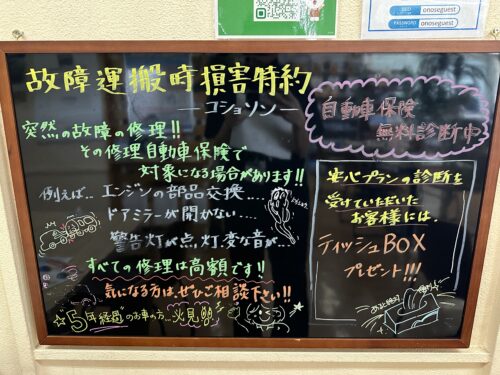 SSID onoseguest
PASSWORD onoseguest
故障運搬時損害特約
―コショソン―
突然の故障の修理!!
その修理自動車保険で
対象になる場合があります!!
例えば… エンジンの部品交換…
ドアミラーが開かない…
警告灯が点灯、変な音が…
すべての修理は高額です!!
気になる方は、ぜひご相談下さい!!
☆5年経過のお車の方、必見!!!
自動車保険
無料診断中
安心プランの診断を
受けていただいた
お客様には、
ティッシュBOX
プレゼント!!!